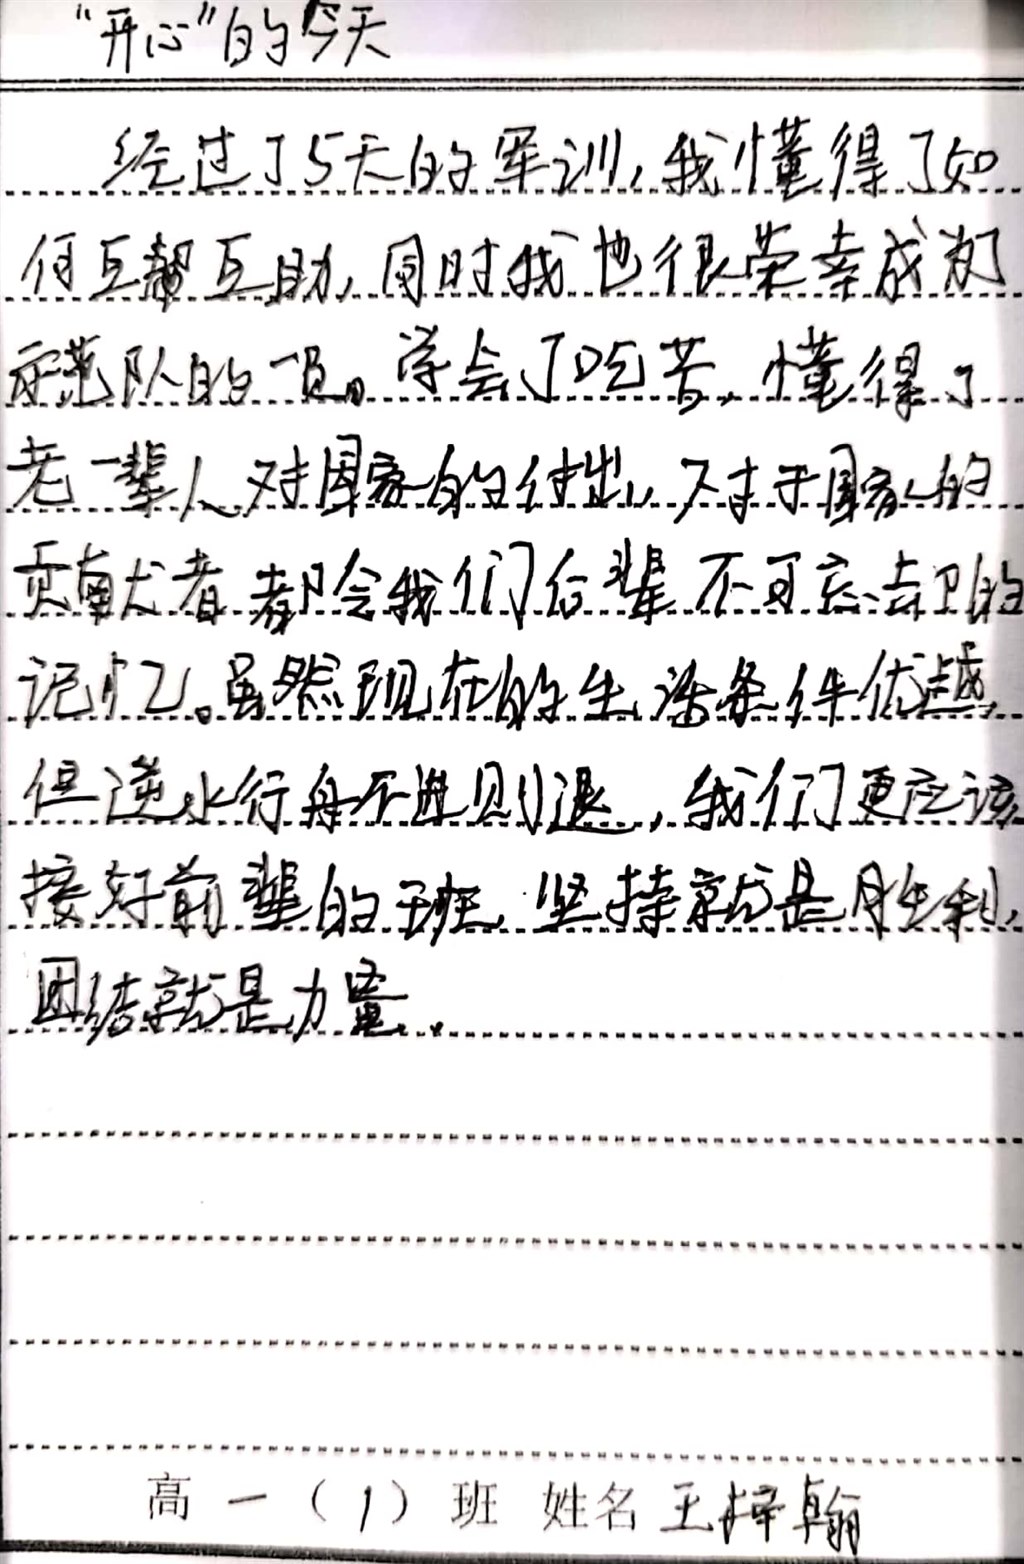 “开心”的今天
经过了5天的军训,我懂得了如
何互帮互助,同时我也很荣幸成为了
示范队的一员。学会了吃苦,懂得了
老一辈人对国家的付出,对于国家的
贡献者都会我们后辈不可忘去的
记忆。虽然现在的生活条件优越,
但逆水行舟不进则退,我们更应该
接好前辈的班,坚持就是胜利,
团结就是力量.
高一(1)班 姓名 王梓翰